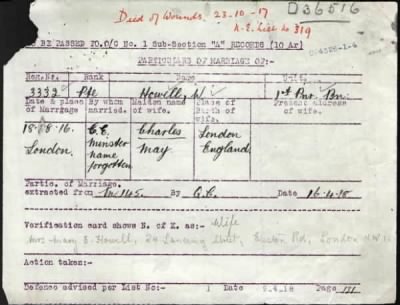 Died of Wounds 23-10-17
D36516
A.E. List No 319
TO BE PASSED TO O/C No. 1 Sub-Section "A" RECORDS (10 Ar)
PARTICULARS OF MARRIAGE OF:-
Reg. No. Rank Name Unit
3332 Pte Howell, W. 1st Pnr. Bn.
Date & place of Marriage By whom married. Maiden name of wife. Place of Birth of wife. Present address of wife.
18-8-16. London. C.E. minster name forgotten Charles May London England
Partic. of Marriage.
extracted from By G.C. Date 16-4-18
Verification card shows N. of K. as:- Wife
Mrs Mary E. Howell, 24 Lancing Street, Euston Rd, London NW1
Action taken:-
Defence advised per List No : 1 Date 9.4.18 Page 131